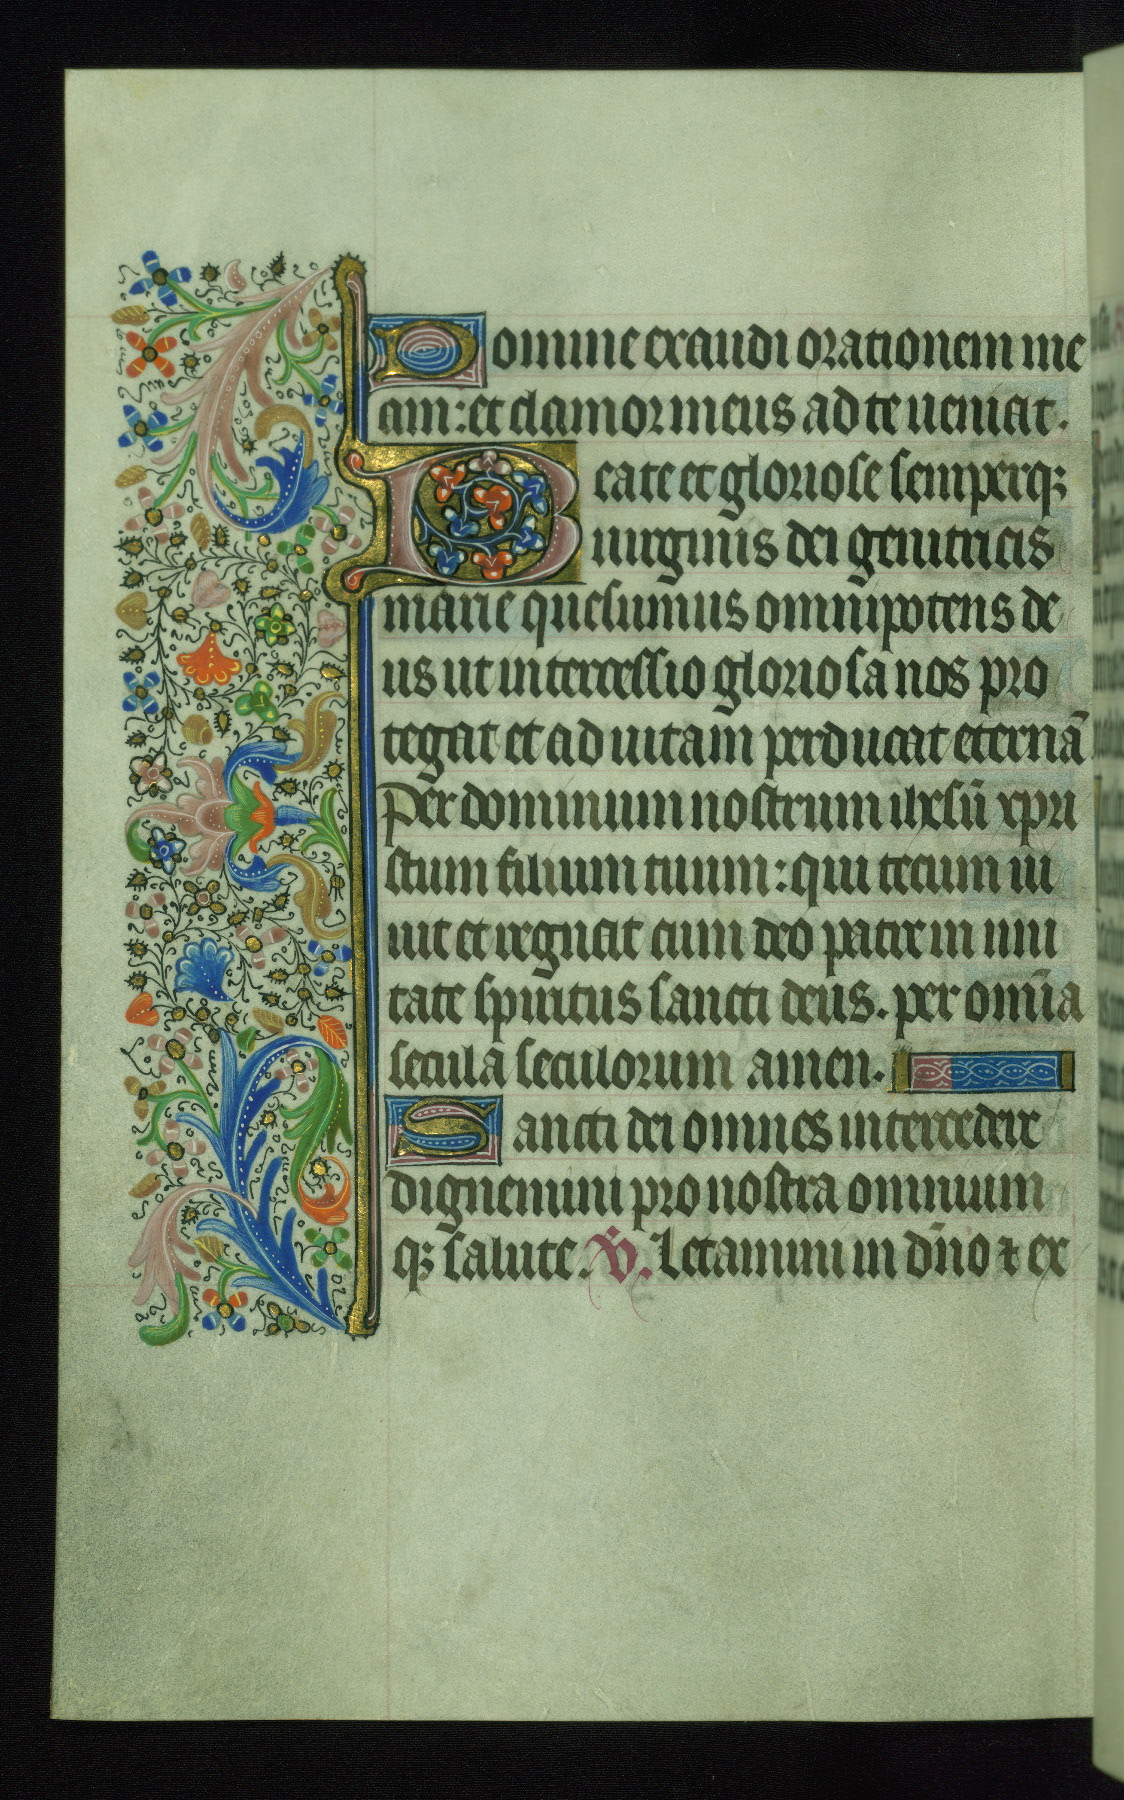 Domine exaudi orationem me
am: et clamor meus ad te ueniat.
Beate et gloriose semperqꝫ
uirginis dei genitricis
marie quesumus omnipotens de
us ut intercessio gloriosa nos pro
tegat et ad uitam perducat eternā
Per dominum nostrum ihesū xpri
stum filium tuum: qui tecum ui
uit et regnat cum deo patre in uni
tate spiritus sancti deus. per om̄ia
secula seculorum amen.
Sancti dei omnes intercedere
dignemini pro nostra omnium
qꝫ salute. V̄. Letamini in dn̄o ⁊ ex